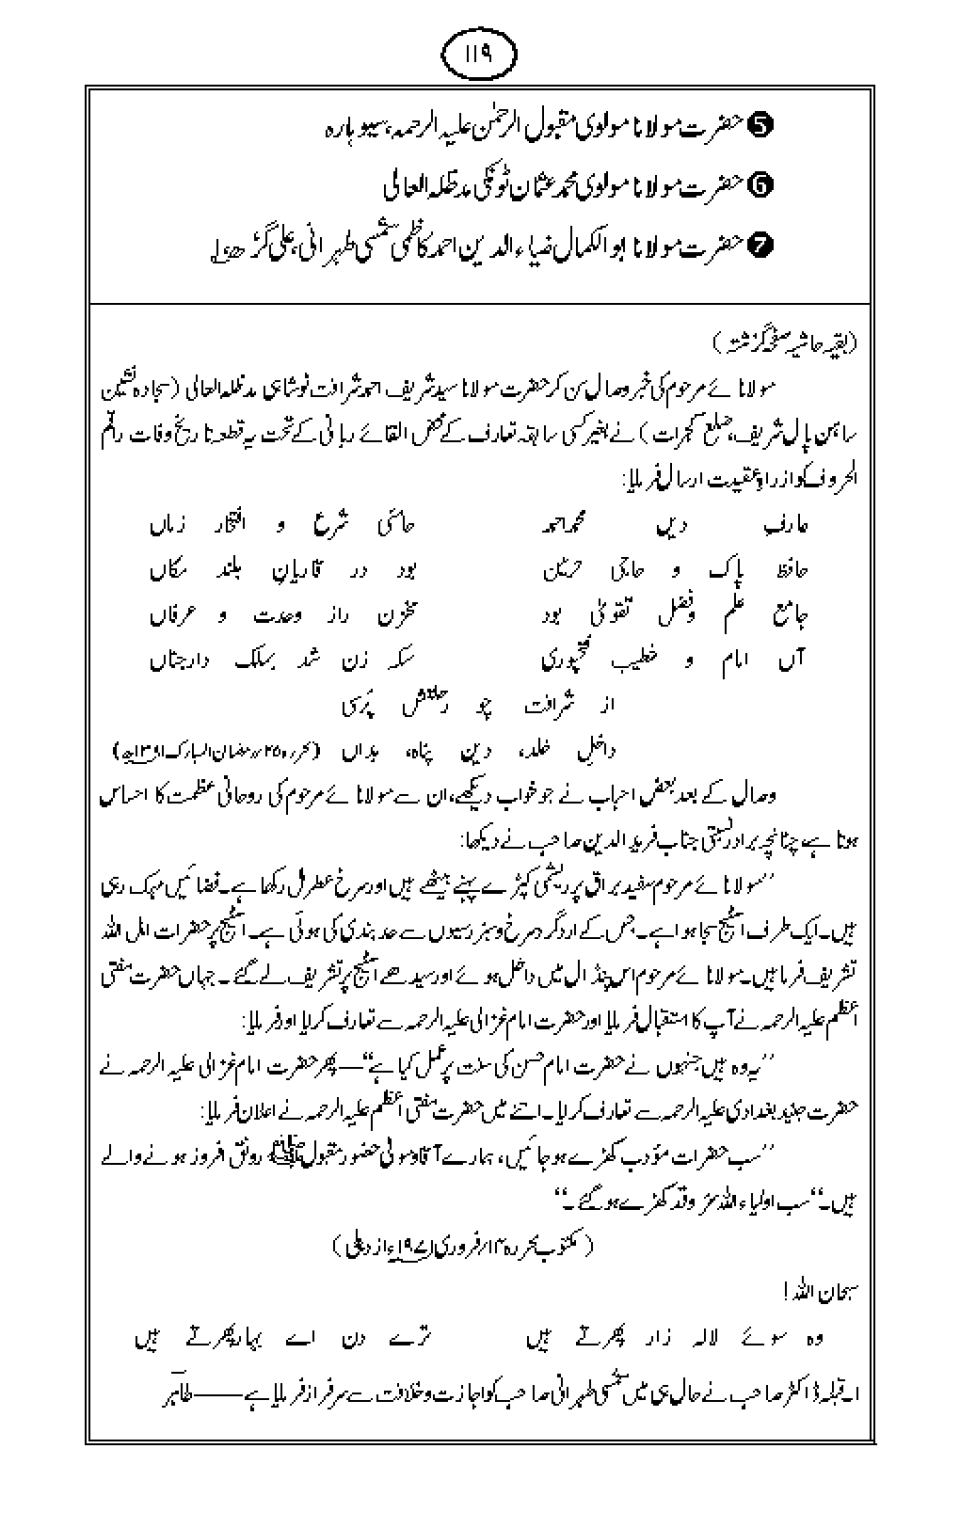 ۱۱۹
❺ حضرت مولانا مولوی مقبول الرحمٰن علیہ الرحمہ، سیوہارہ
❻ حضرت مولانا مولوی محمد عثمان ٹونکی مدظلہ العالی
❼ حضرت مولانا ابو الکمال ضیاء الدین احمد کاظمی شمسی طہرانی، علی گڑھ، ۱
(بقیہ حاشیہ صفحہ گزشتہ)
مولانائے مرحوم کی خبر وصال سن کر حضرت مولانا سید شریف احمد شرافت نوشاہی مدظلہ العالی (سجادہ نشین
ساہن پال شریف، ضلع گجرات) نے بغیر کسی سابقہ تعارف کے محض القائے ربانی کے تحت یہ قطعہ تاریخ وفات راقم
الحروف کو از راہِ عقیدت ارسال فرمایا:
عارفِ دیں محمد احمد حامیٔ شرع و افتخارِ زماں
حافظ پاک و حاجی حرمین بود در قاریانِ بلند مکاں
جامع علم و فضل تقویٰ بود مخزن راز وحدت و عرفاں
آں امام و خطیب فتحپوری سکہ زن شد بملک دارجناں
از شرافت چو رحلتش پُرسی
داخلِ خلد، دین پناہ، بداں (محررہ ۲۵؍ رمضان المبارک ۱۳۹۱ھ)
وصال کے بعد بعض احباب نے جو خواب دیکھے، ان سے مولانائے مرحوم کی روحانی عظمت کا احساس
ہوتا ہے چنانچہ برادر نسبتی جناب فرید الدین صاحب نے دیکھا:
’’مولانائے مرحوم سفید براق پر ریشمی کپڑے پہنے بیٹھے ہیں اور سرخ عطر مل رکھا ہے۔ فضائیں مہک رہی
ہیں۔ ایک طرف اسٹیج سجا ہوا ہے۔ جس کے اردگرد سرخ و سبز رسیوں سے حد بندی کی ہوئی ہے۔ اسٹیج پر حضرات اہل اللہ
تشریف فرما ہیں۔ مولانائے مرحوم اس پنڈال میں داخل ہوئے اور سیدھے اسٹیج پر تشریف لے گئے۔ جہاں حضرت مفتی
اعظم علیہ الرحمہ نے آپ کا استقبال فرمایا اور حضرت امام غزالی علیہ الرحمہ سے تعارف کرایا اور فرمایا:
’’یہ وہ ہیں جنہوں نے حضرت امام حسن کی سنت پر عمل کیا ہے‘‘— پھر حضرت امام غزالی علیہ الرحمہ نے
حضرت جنید بغدادی علیہ الرحمہ سے تعارف کرایا۔ اتنے میں حضرت مفتی اعظم علیہ الرحمہ نے اعلان فرمایا:
’’سب حضرات مؤدب کھڑے ہوجائیں، ہمارے آقا و مولیٰ حضور مقبول ﷺ رونق افروز ہونے والے
ہیں۔‘‘ سب اولیاء اللہ سروقد کھڑے ہوگئے۔‘‘
(مکتوب محررہ ۱۴؍ فروری ۱۹۷۱ء از دہلی)
سبحان اللہ!
وہ سوئے لالہ زار پھرتے ہیں ترے دن اے بہار پھرتے ہیں
۱۔ قبلہ ڈاکٹر صاحب نے حال ہی میں شمسی طہرانی صاحب کو اجازت و خلافت سے سرفراز فرمایا ہے —— طاہر